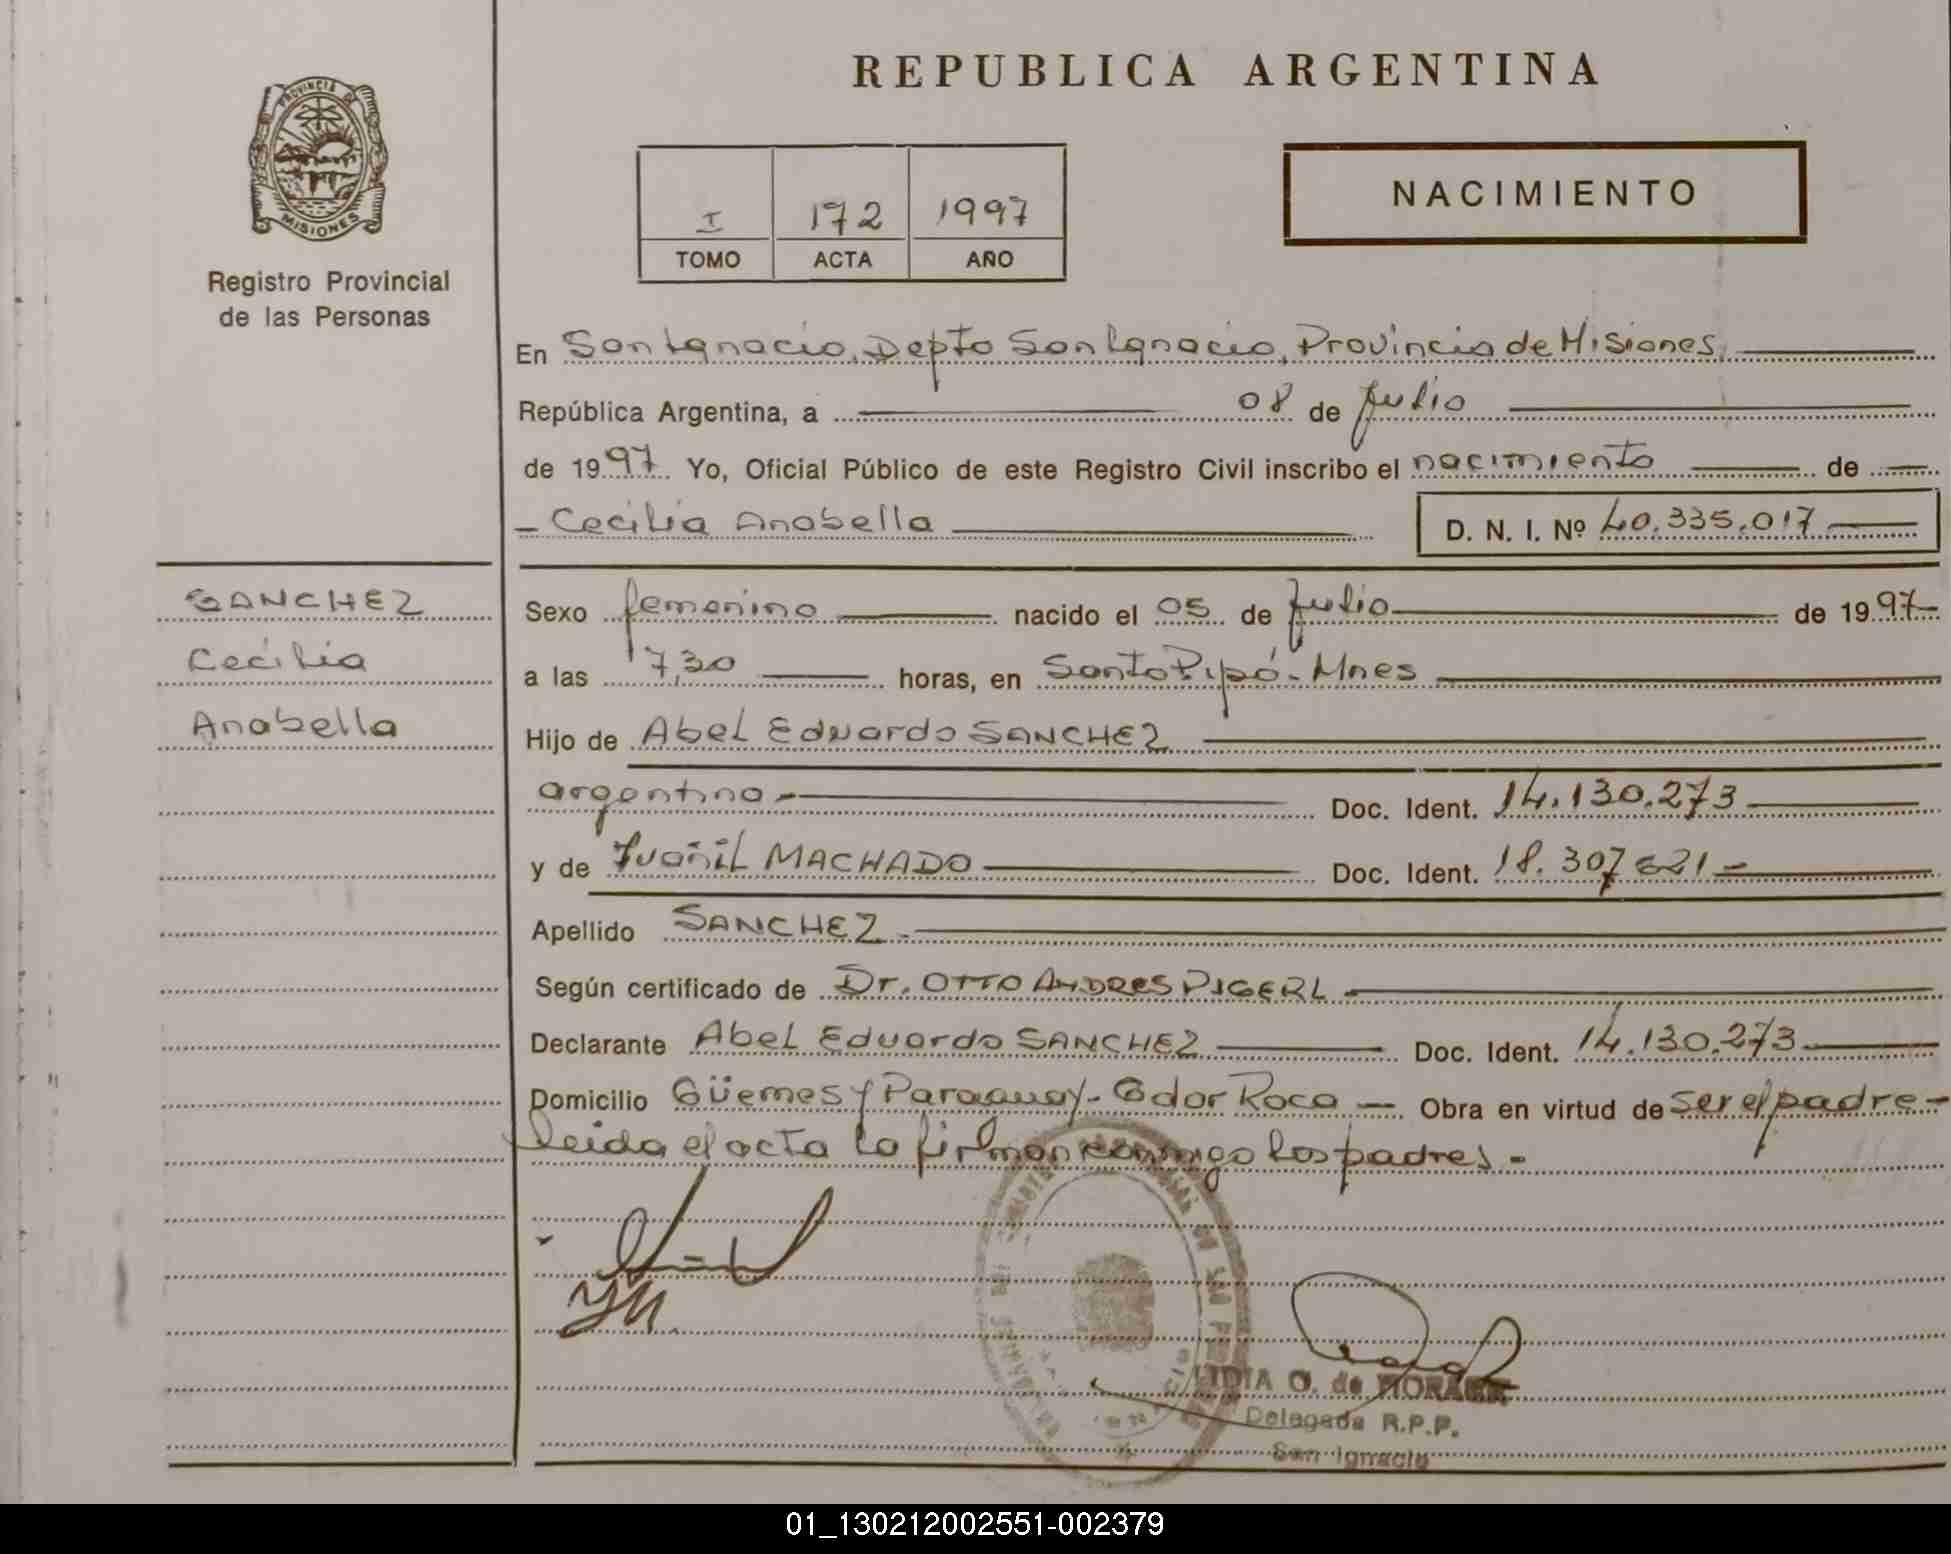 REPUBLICA ARGENTINA
PROVINCIA DE
MISIONES
Registro Provincial
de las Personas
I 172 1997
TOMO ACTA AÑO
NACIMIENTO
En San Ignacio, Depto San Ignacio, Provincia de Misiones
República Argentina, a 08 de Julio
de 1997 Yo, Oficial Público de este Registro Civil inscribo el nacimiento de
- Cecilia Anabella D. N. I. Nº 40.335.017
SANCHEZ
Cecilia
Anabella
Sexo femenino nacido el 05 de Julio de 1997-
a las 7,30 horas, en Santo Pipó - Mnes
Hijo de Abel Eduardo SANCHEZ
argentino - Doc. Ident. 14.130.273
y de MACHADO Doc. Ident. 18.307.621 -
Apellido SANCHEZ -
Según certificado de Dr. OTTO ANDRES PIGERL -
Declarante Abel Eduardo SANCHEZ Doc. Ident. 14.130.273
Domicilio Güemes y Paraguay - Gdor Roca - Obra en virtud de ser el padre -
leida el acta la firman conmigo los padres. -
LIDIA O. de
Delegada R.P.P.
San Ignacio
01_130212002551-002379